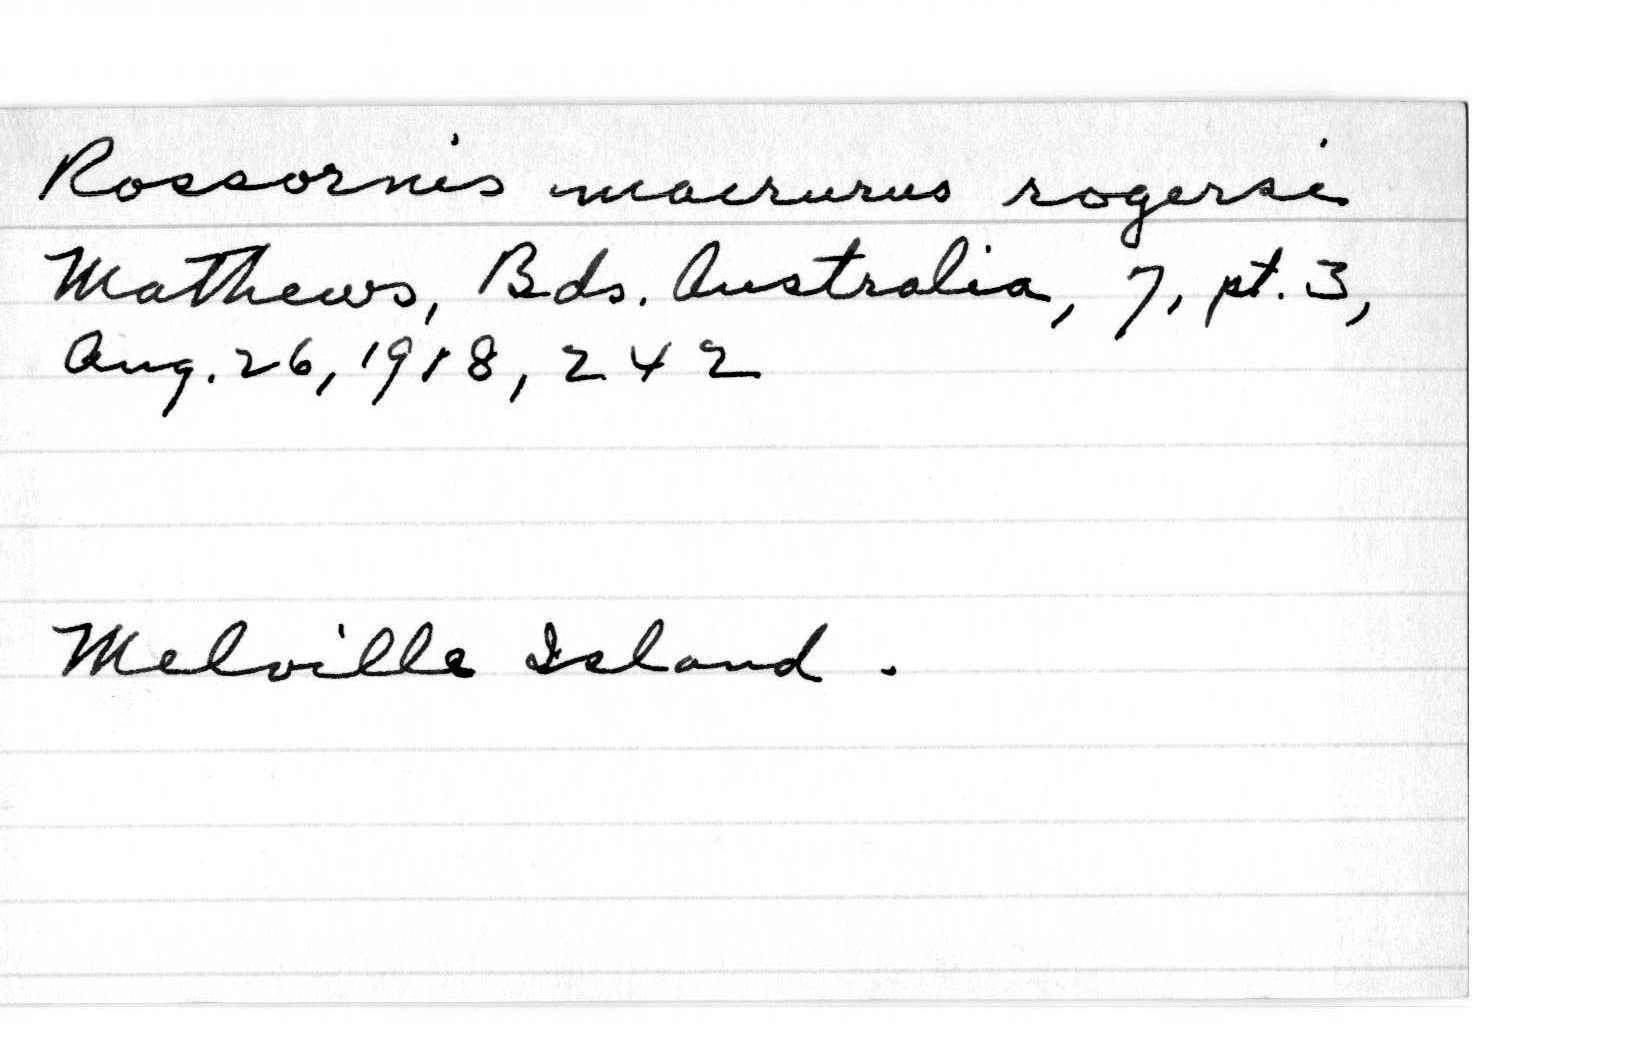 Rossornis macrurus rogersi
Mathews, Bds. Australia, 7, pt. 3,
Aug. 26, 1918, 242
Melville Island.